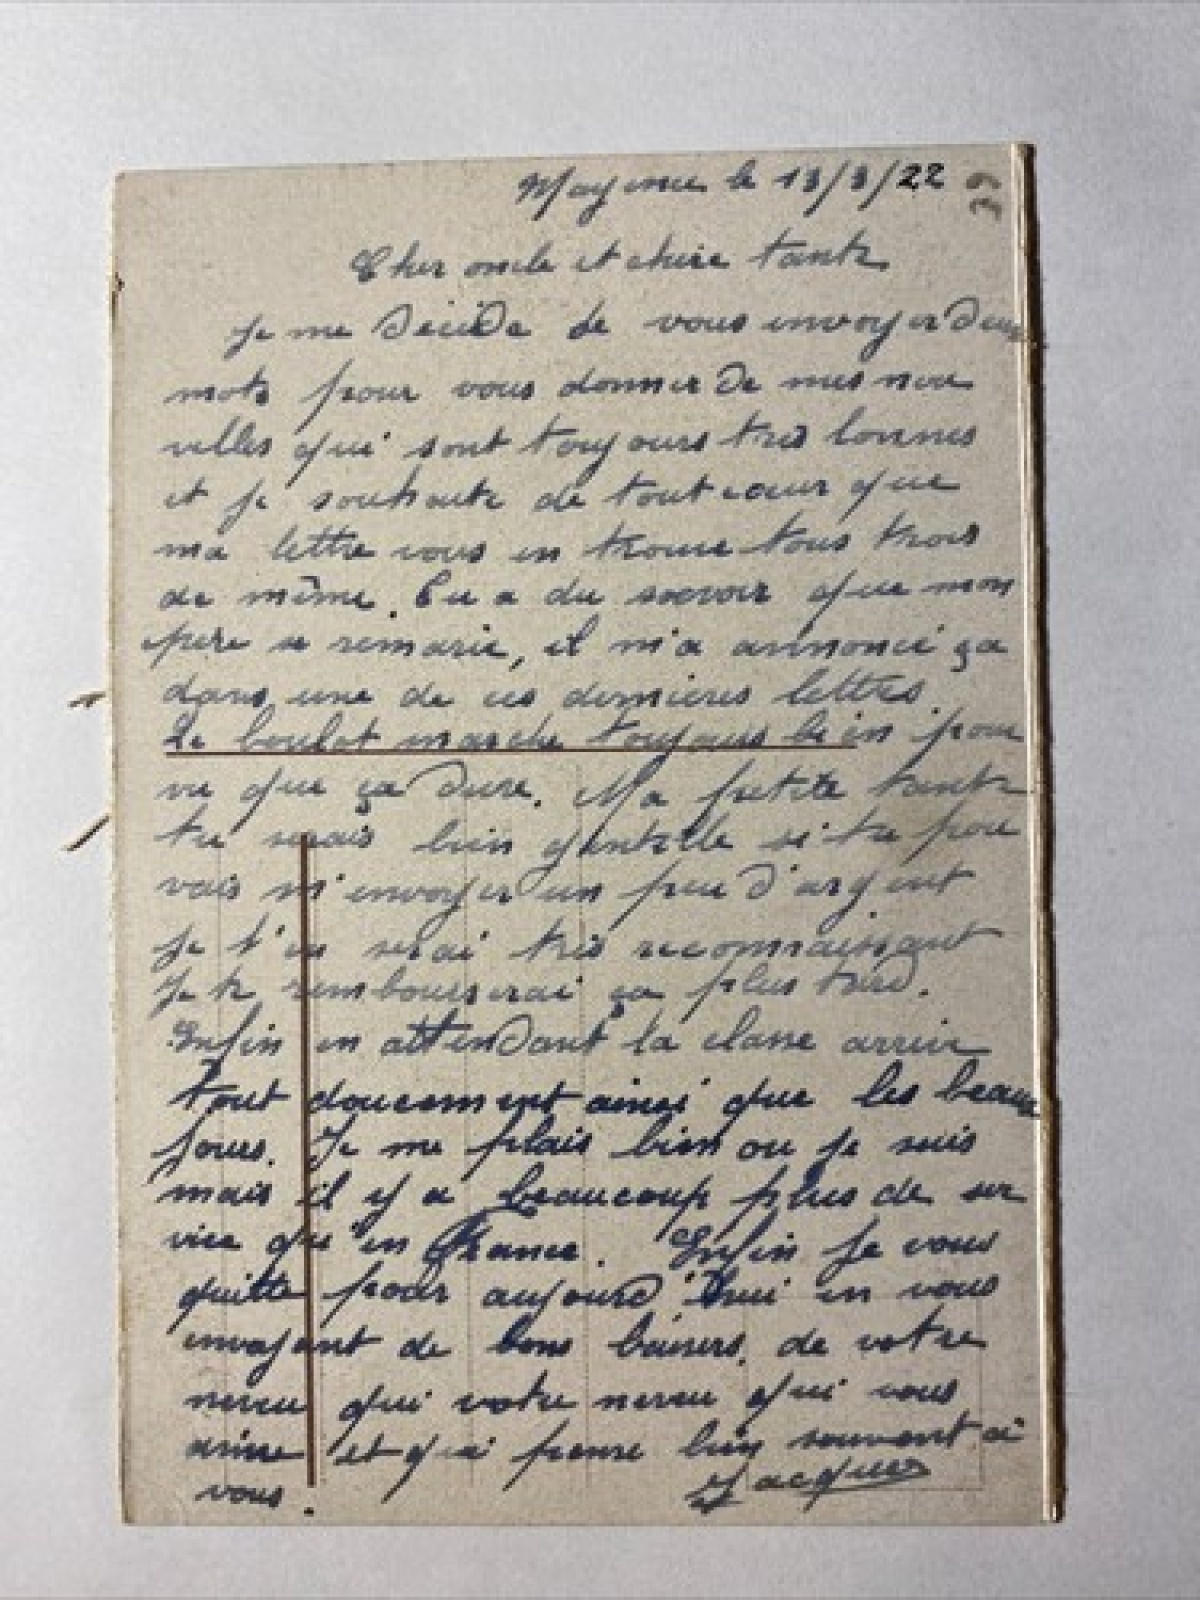 Mayence le 13/3/22
Cher oncle et chère tante
Je me décide de vous envoyer deux
mots pour vous donner de mes nou
velles qui sont toujours très bonnes
et je souhaite de tout cœur que
ma lettre vous en trouve tous trois
de même. Tu a du savoir que mon
père se remarie, il m'a annoncé ça
dans une de ces dernieres lettres.
Le boulot marche toujours bien pour
vu que ça dure. Ma petite tante
tu serais bien gentille si tu pou
vais m'envoyer un peu d'argent
je t'en serai très reconnaissant
Je te rembourserai ça plus tard.
Enfin en attendant la classe arrive
tout doucement ainsi que les beaux
jours. Je me plais bien ou je suis
mais il y a beaucoup plus de ser
vice qu'en France. Enfin je vous
quitte pour aujourd'hui en vous
envoyant de bons baisers de votre
neveu qui votre neveu qui vous
aime et qui pense bien souvent à
vous.
Jacques